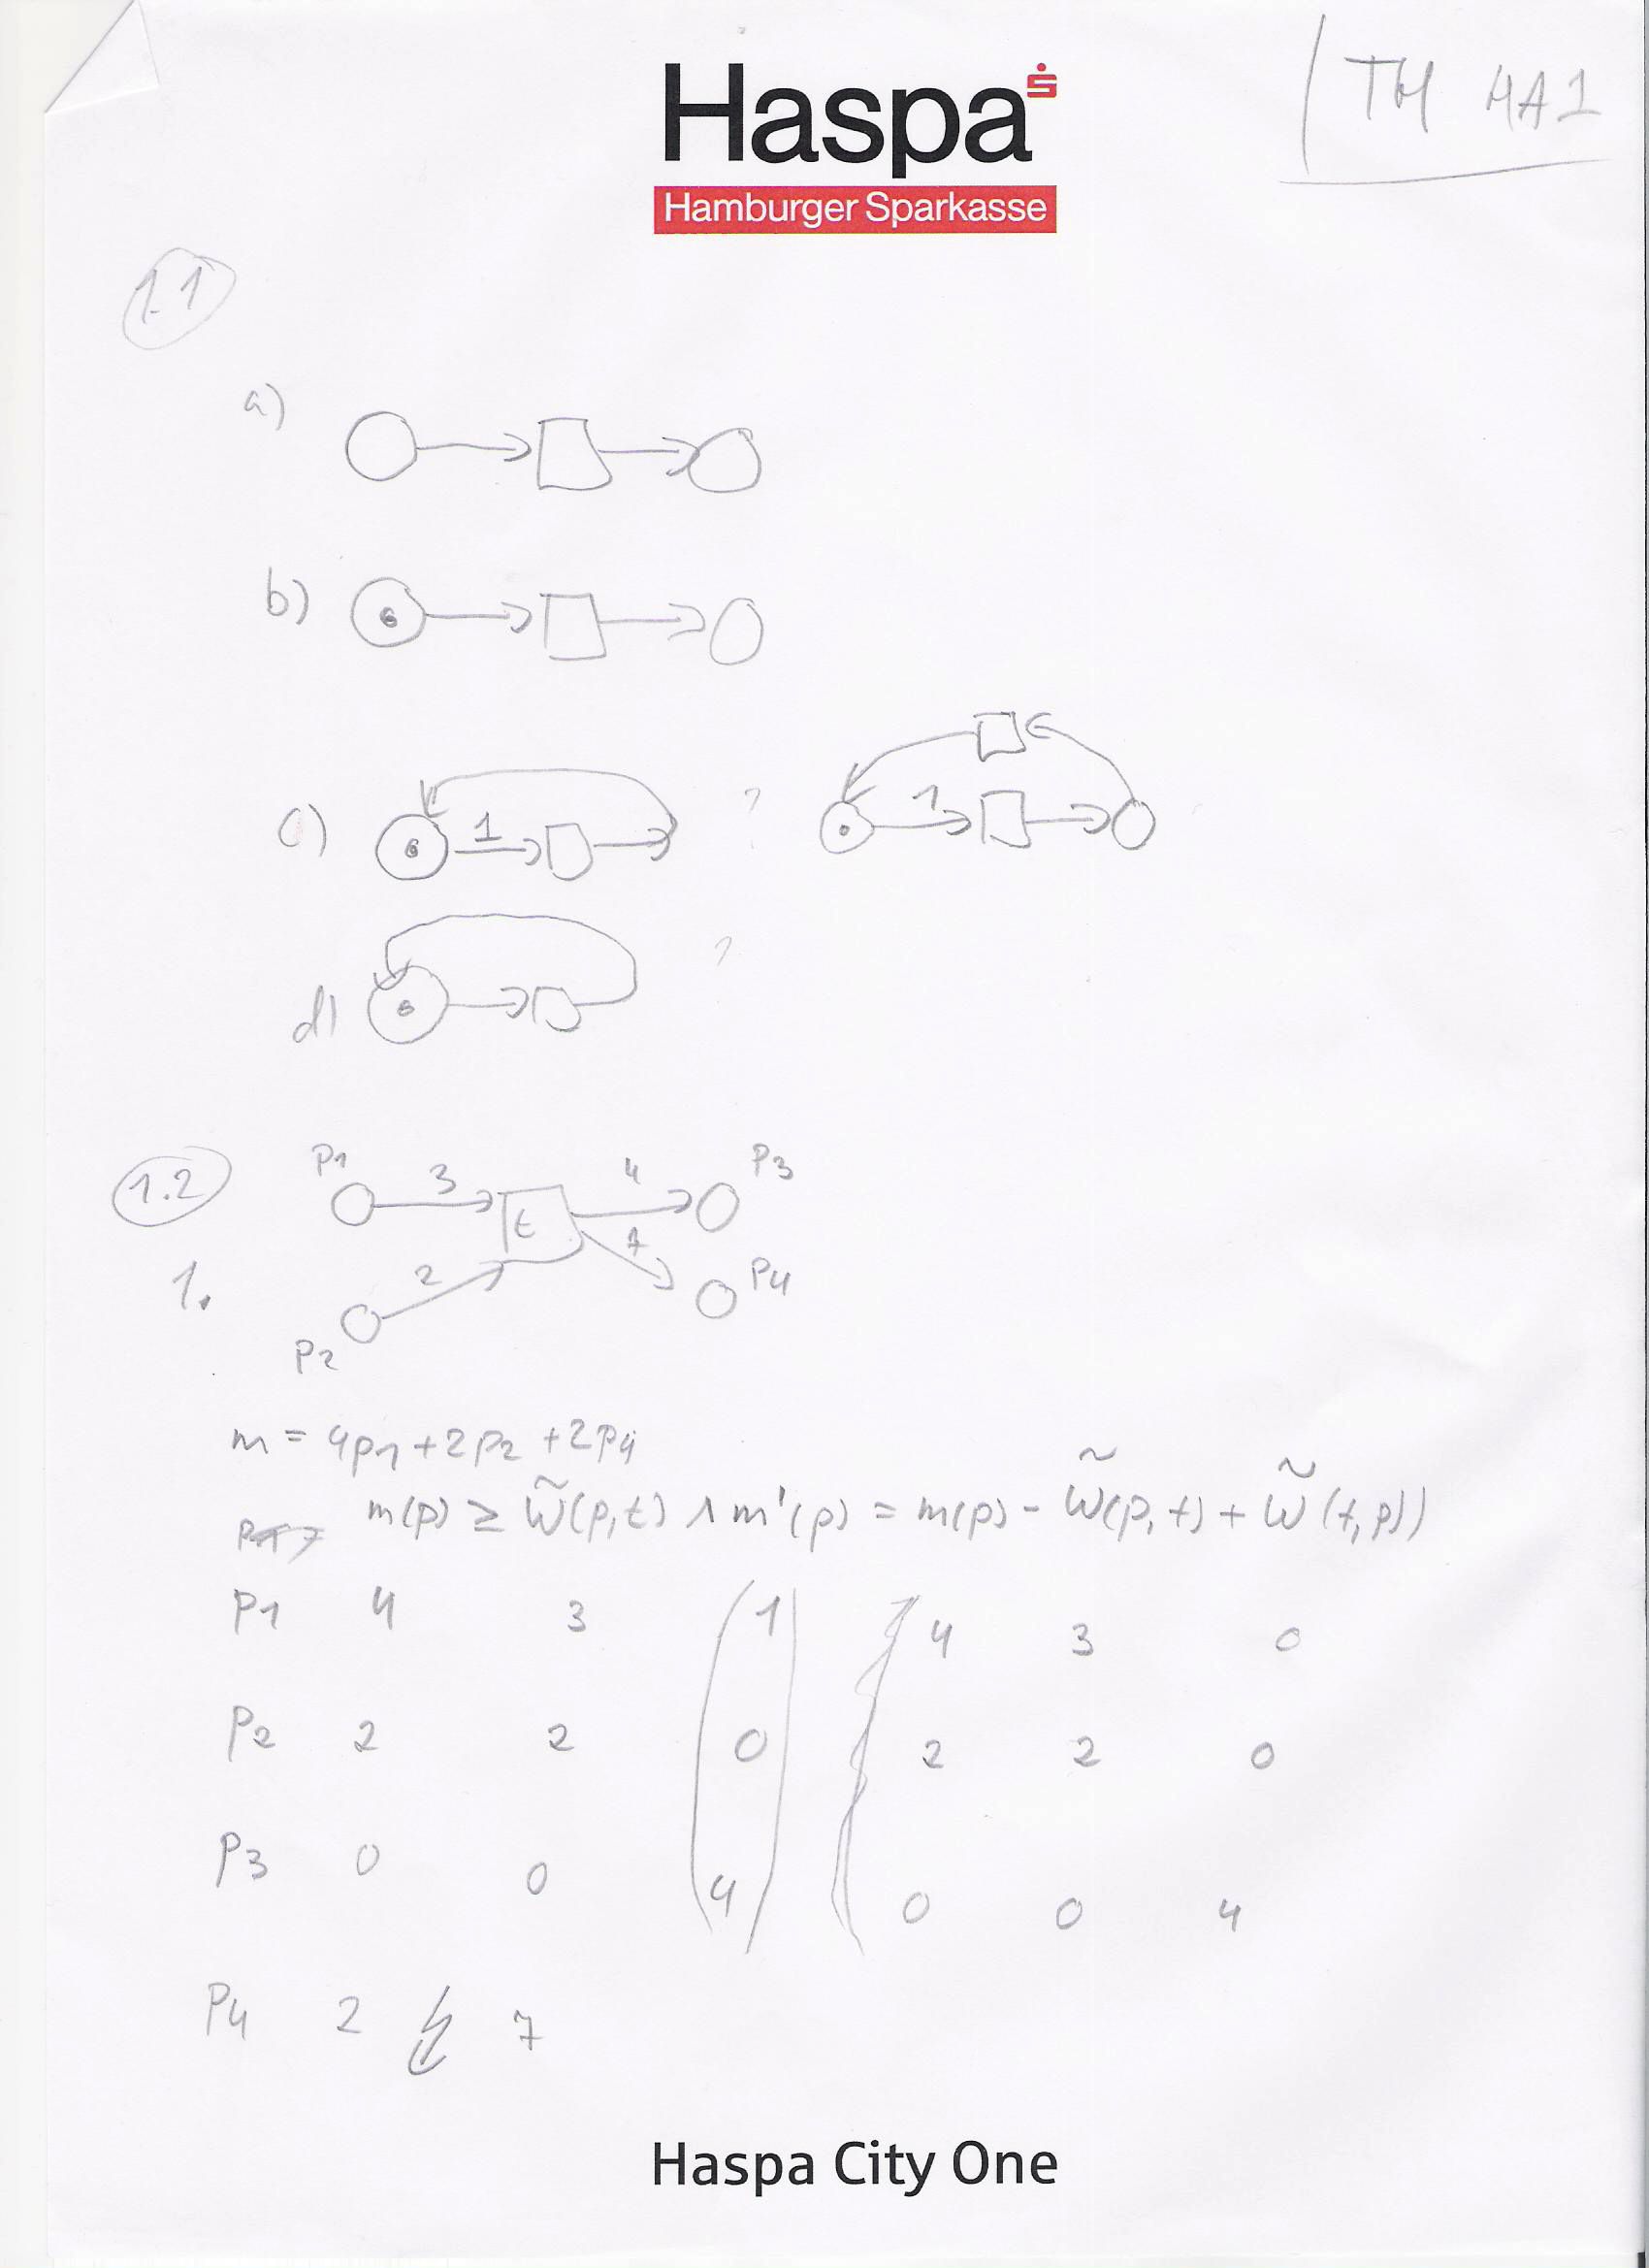 Haspa
Hamburger Sparkasse
1.1
a)
b)
c) 1 ? 1
d) ?
1.2
P1 3 t 4 P3
1. 2 7 P4
P2
m = 4p1 + 2p2 + 2p4
m(p) ≥ W̃(p,t) ∧ m'(p) = m(p) - W̃(p,t) + W̃(t,p))
P1 4 3 (1 4 3 0
P2 2 2 0 2 2 0
P3 0 0 4 0 0 4
P4 2 7
Haspa City One